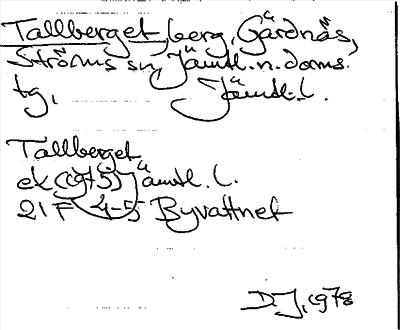 Tallberget, berg, Gärdnäs,
Ströms sn, Jämtl. n. doms.
tg, Jämtl. l.
Tallberget
ek (1975) Jämtl. l.
21 F 4-5 Byvattnet
D.J. 1978